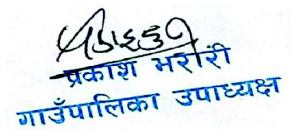 प्रकाश भरारी
गाउँपालिका उपाध्यक्ष